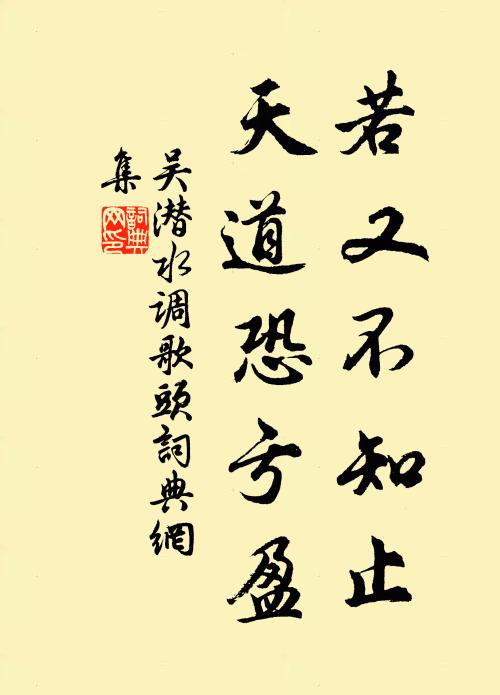 若又不知止
天道恐亏盈
吴潜水调歌頭詞典網
集
詞典网印